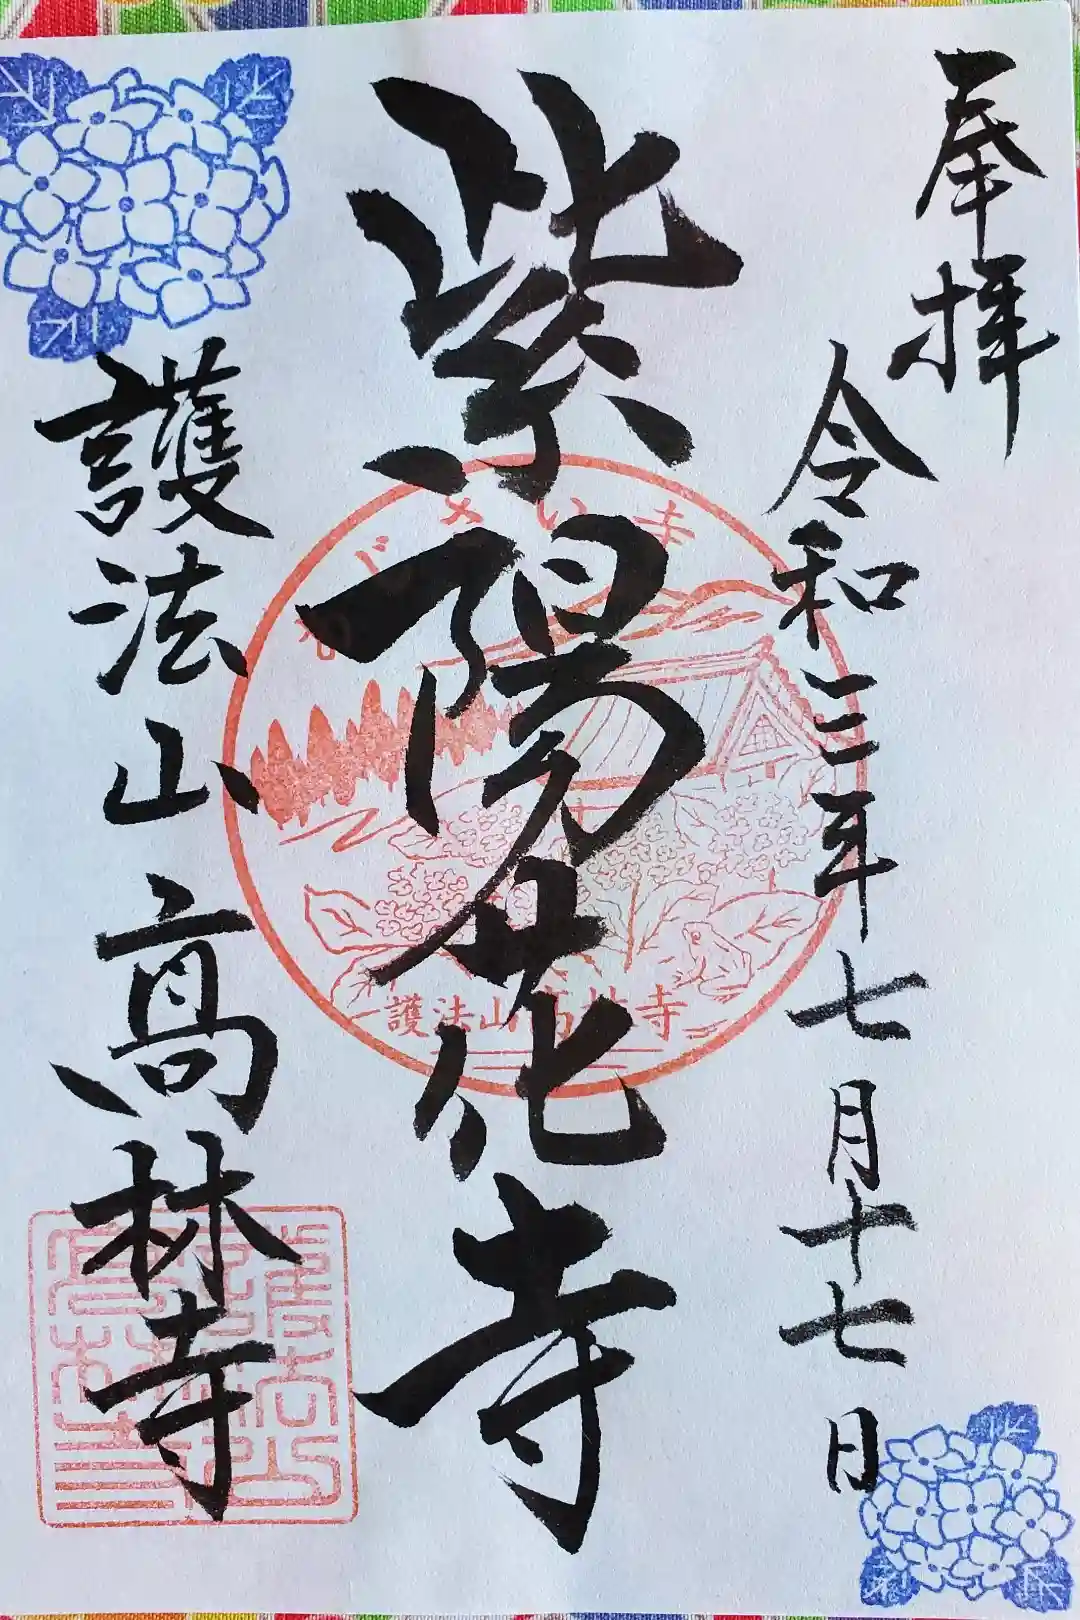 奉拝
令和三年七月十七日
紫陽花寺
護法山高林寺
あじさい寺
護法山高林寺
護法山高林寺